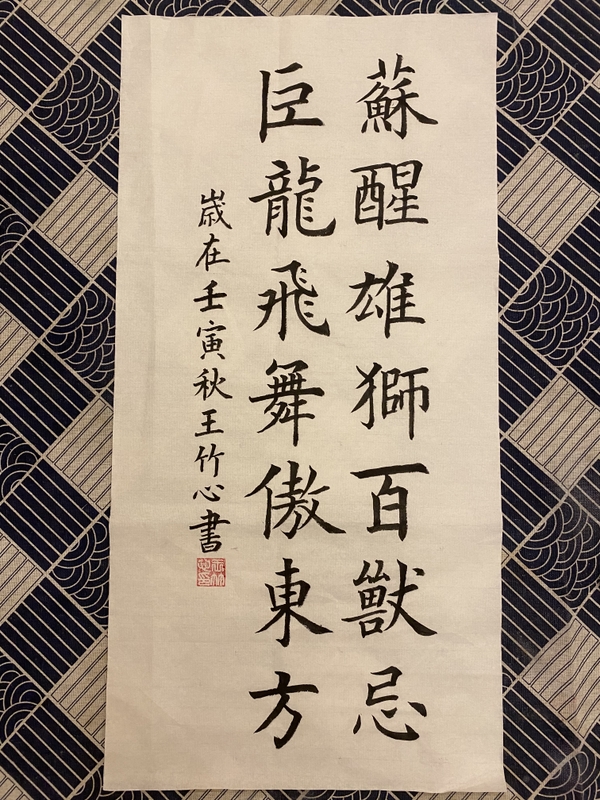 蘇醒雄獅百獸忌
巨龍飛舞傲東方
歲在壬寅秋王竹心書